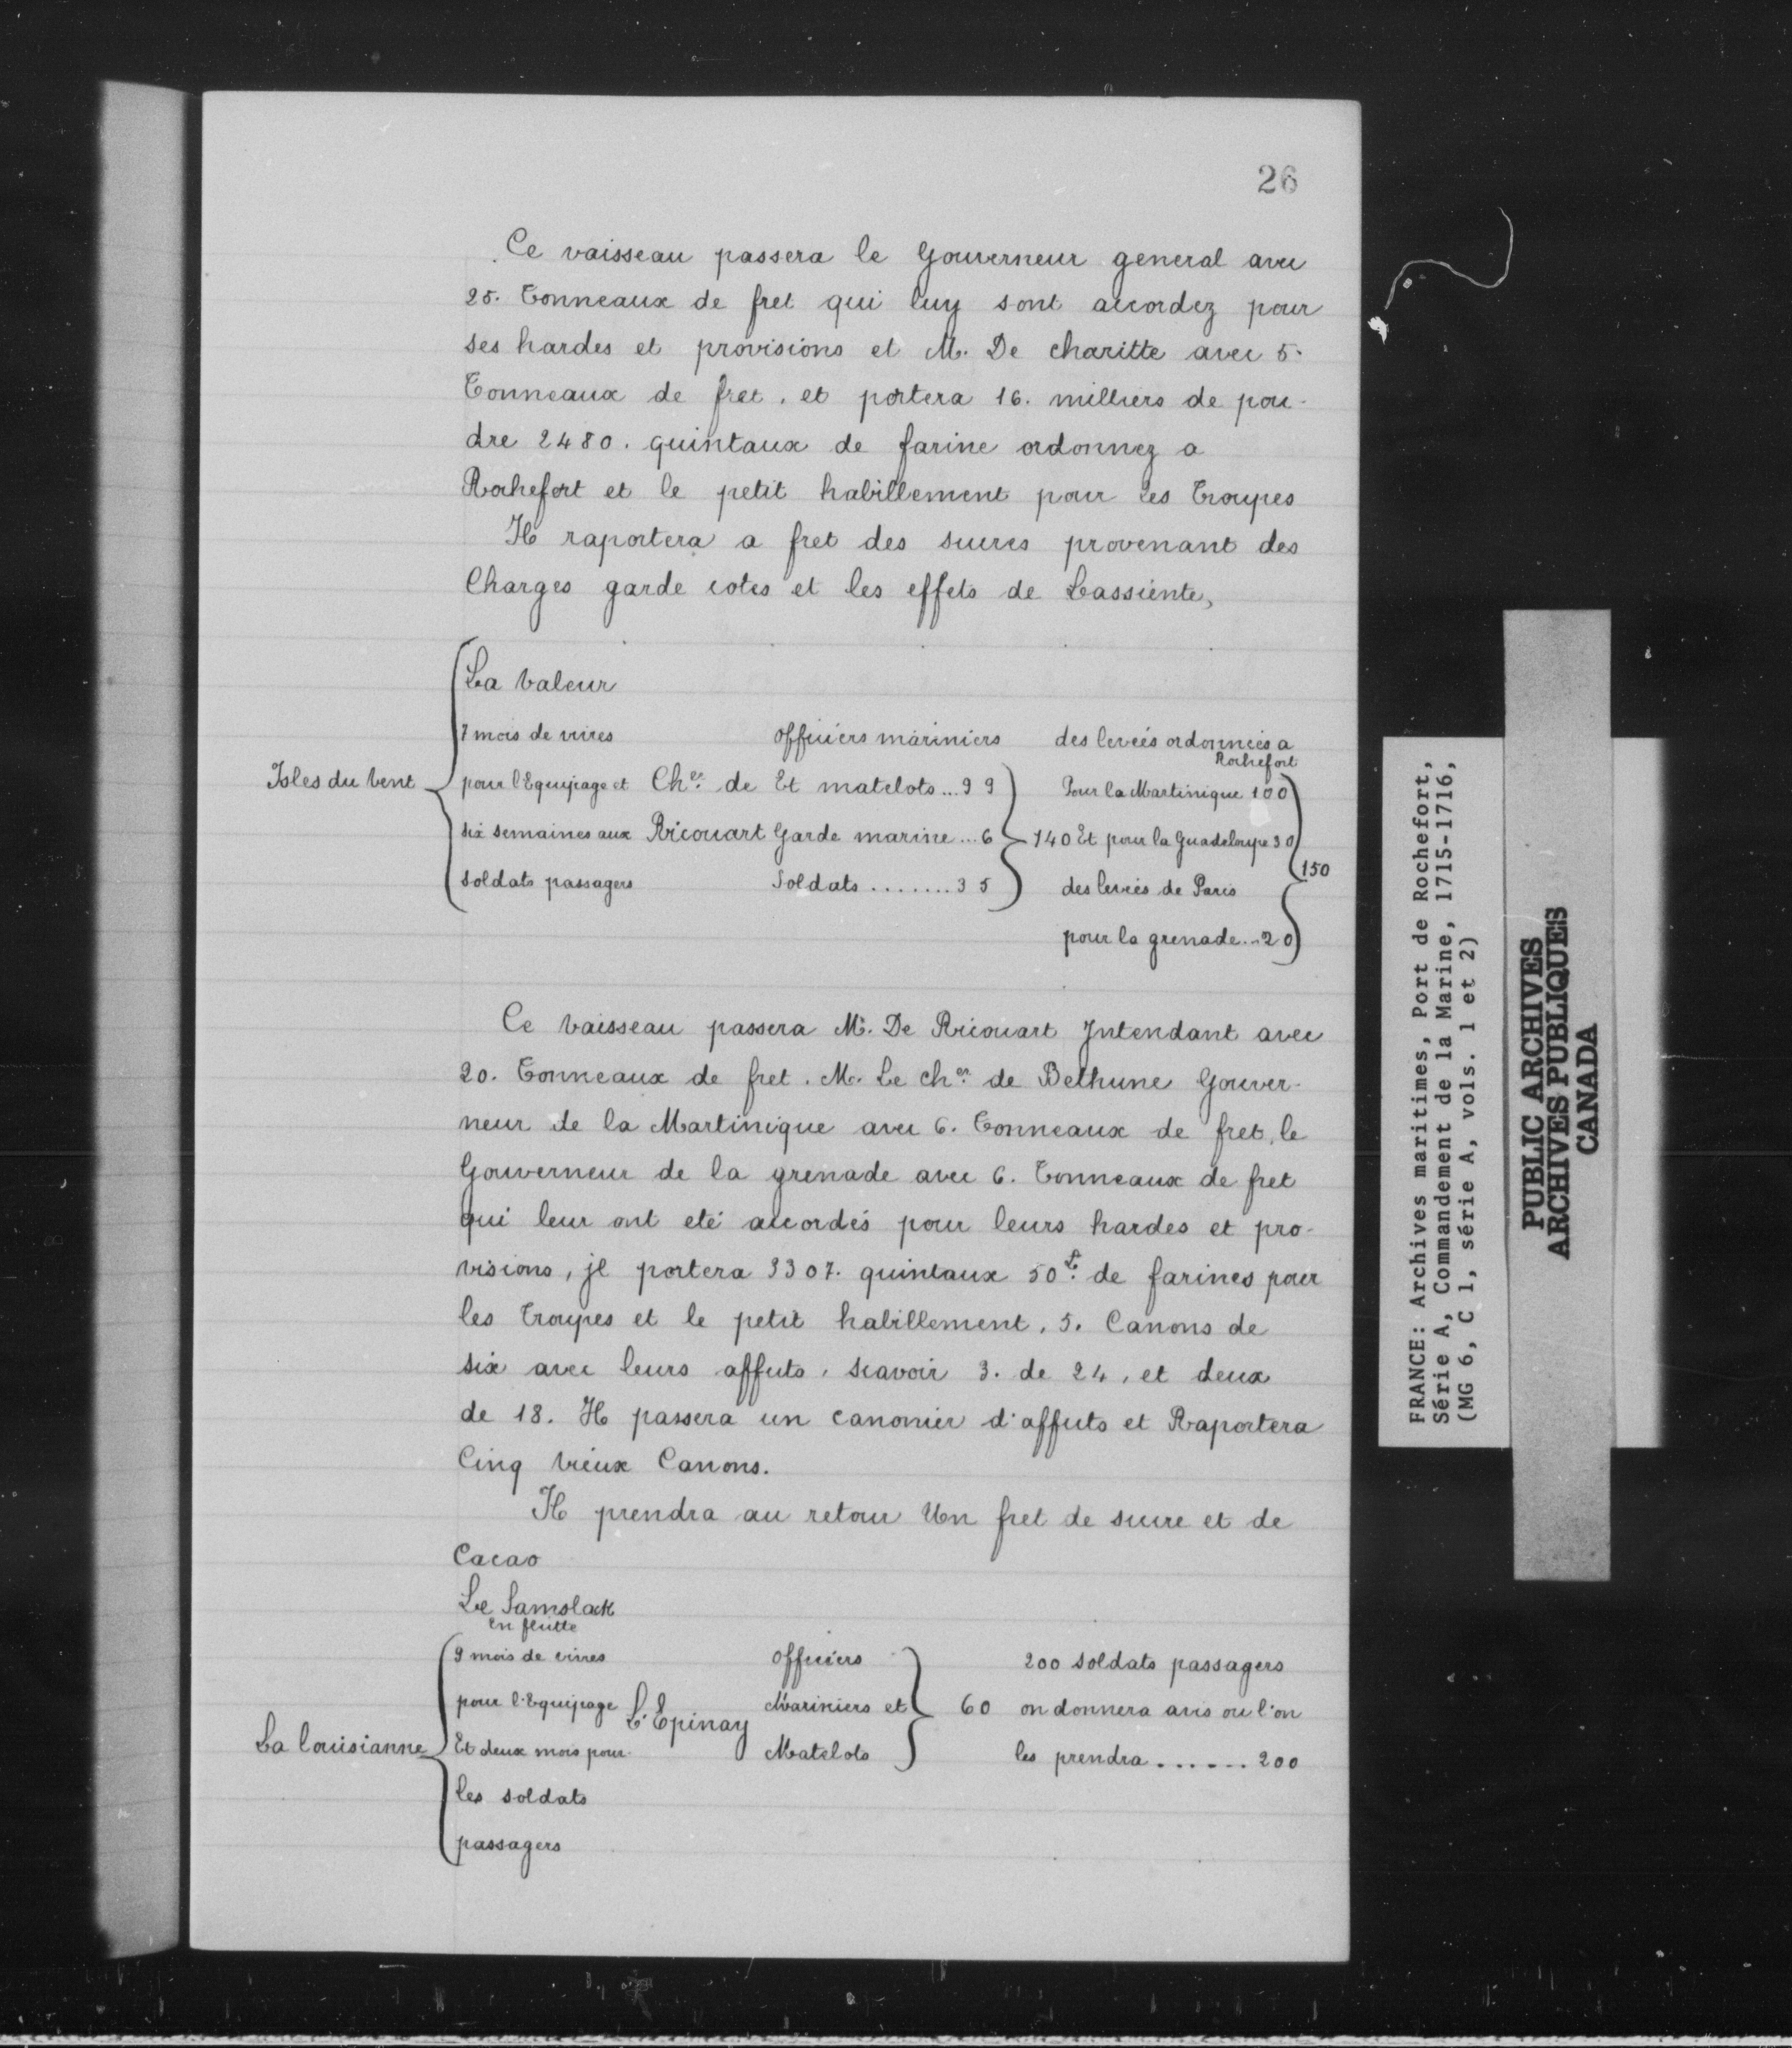 26
Ce vaisseau passera le Gouverneur general avec
25. Tonneaux de fret qui luy sont accordez pour
ses hardes et provisions et M. De charitte avec 5.
Tonneaux de fret, et portera 16. milliers de pou-
dre 2480. quintaux de farine ordonnez a
Rochefort et le petit habillement pour les Troupes
Il raportera a fret des sucres provenant des
Charges garde cotes et les effets de Lassiente,
La Valeur
7 mois de vivres officiers mariniers des levées ordonnées a
Rochefort
Isles du Vent pour l'Equipage et Cher. de Et matelots...99 Pour la Martinique 100
six semaines aux Ricouart Garde marine...6 140 Et pour la Guadeloupe 30
150
soldats passagers Soldats........35 des levées de Paris
pour la grenade...20
Ce Vaisseau passera M. De Ricouart Jntendant avec
20. Tonneaux de fret. M. Le cher. de Bethune Gouver-
neur de la Martinique avec 6. Tonneaux de fret, le
Gouverneur de la grenade avec 6. Tonneaux de fret
qui leur ont eté accordés pour leurs hardes et pro-
visions, jl portera 3307. quintaux 50 L. de farines pour
les Troupes et le petit habillement, 5. Canons de
six avec leurs affuts, scavoir 3. de 24, et deux
de 18. Il passera un canonier d'affuts et Raportera
Cinq Vieux Canons.
Il prendra au retour Un fret de sucre et de
Cacao
Le Samslack
en flutte
9 mois de vivres officiers 200 soldats passagers
pour l'Equipage L'Epinay Mariniers et 60 on donnera avis ou l'on
La louisianne Et deux mois pour Matelots les prendra......200
les soldats
passagers
FRANCE: Archives maritimes, Port de Rochefort,
Série A, Commandement de la Marine, 1715-1716,
(MG 6, C 1, série A, vols. 1 et 2)
PUBLIC ARCHIVES
ARCHIVES PUBLIQUES
CANADA